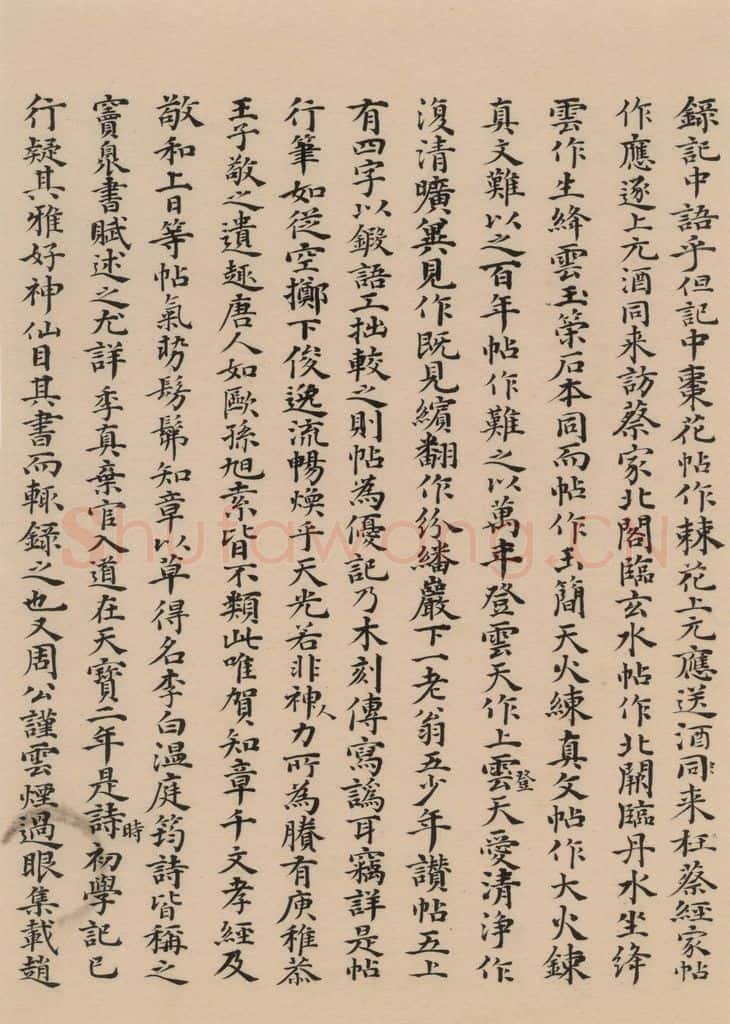 錄記中語乎但記中棗花帖作棘花上元應送酒同来枉蔡經家帖
作應逐上元酒同来訪蔡家北閣臨玄水帖作北闕臨丹水坐絳
雲作生絳雲玉策石本同而帖作玉簡天火練真文帖作大火鍊
真文難以之百年帖作難之以萬年登雲天作上雲登天愛清浄作
復清曠異見作既見繽翻作紛繙巖下一老翁五少年讚帖五上
有四字以鍛語工拙較之則帖為優記乃木刻傳寫譌耳竊詳是帖
行筆如從空擲下俊逸流暢煥乎天光若非神人力所為賸有庾稚恭
王子敬之遺趣唐人如歐孫旭素皆不類此唯賀知章千文孝經及
敬和上日等帖氣勢髣髴知章以草得名李白温庭筠詩皆稱之
竇泉書賦述之尤詳季真棄官入道在天寶二年是詩時初學記已
行疑其雅好神仙目其書而輒錄之也又周公謹雲煙過眼集載趙
Shufawang.CN